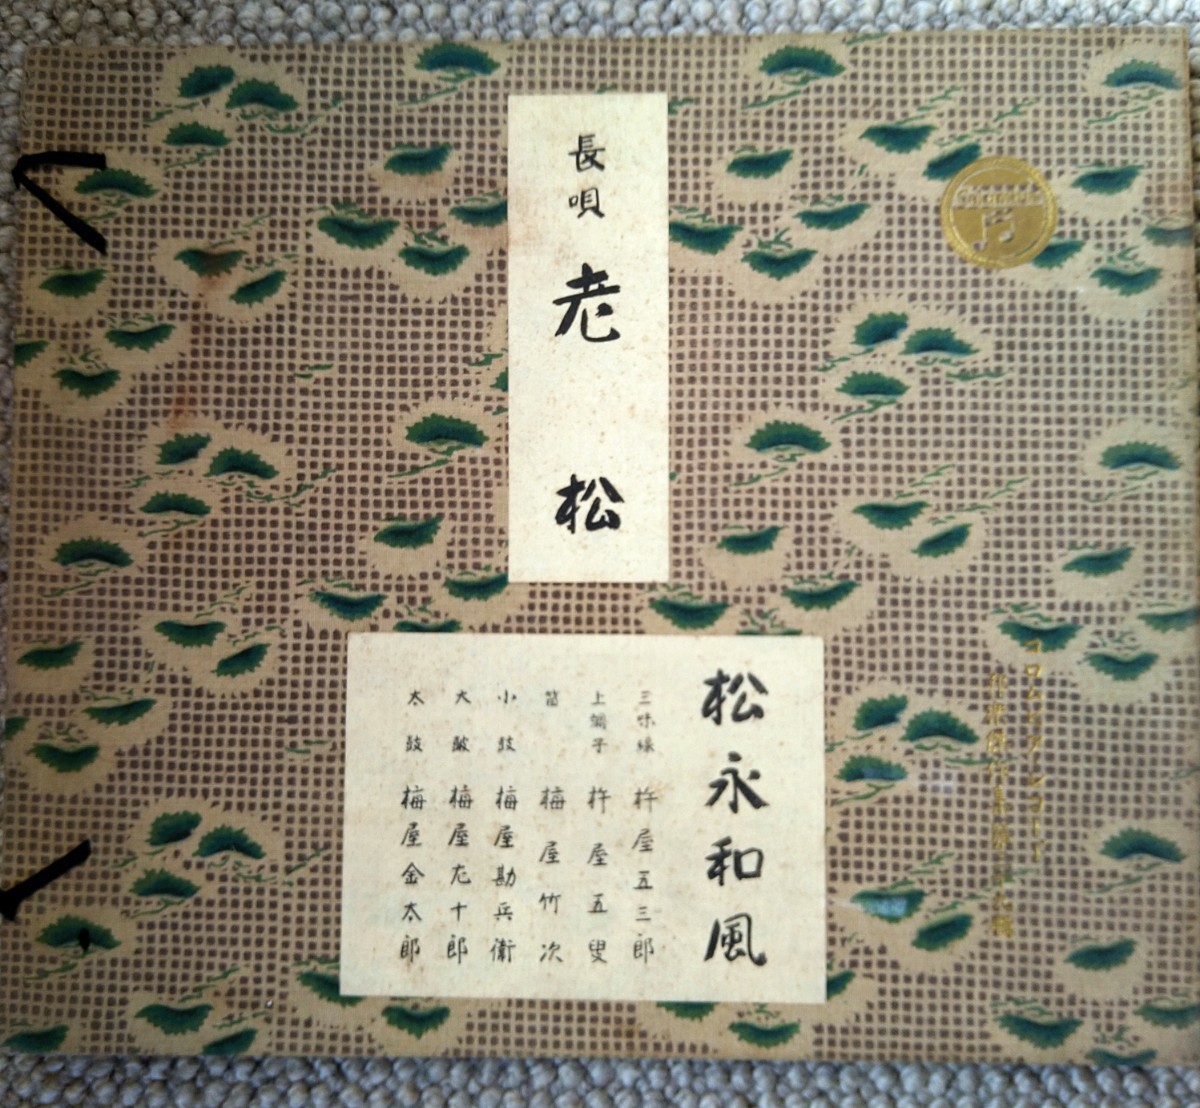 長唄
老松
松永和風
三味線 杵屋五三郎
上調子 杵屋五叟
笛 梅屋竹次
小鼓 梅屋勘兵衛
大皷 梅屋左十郎
太鼓 梅屋金太郎
コロムビアレコード